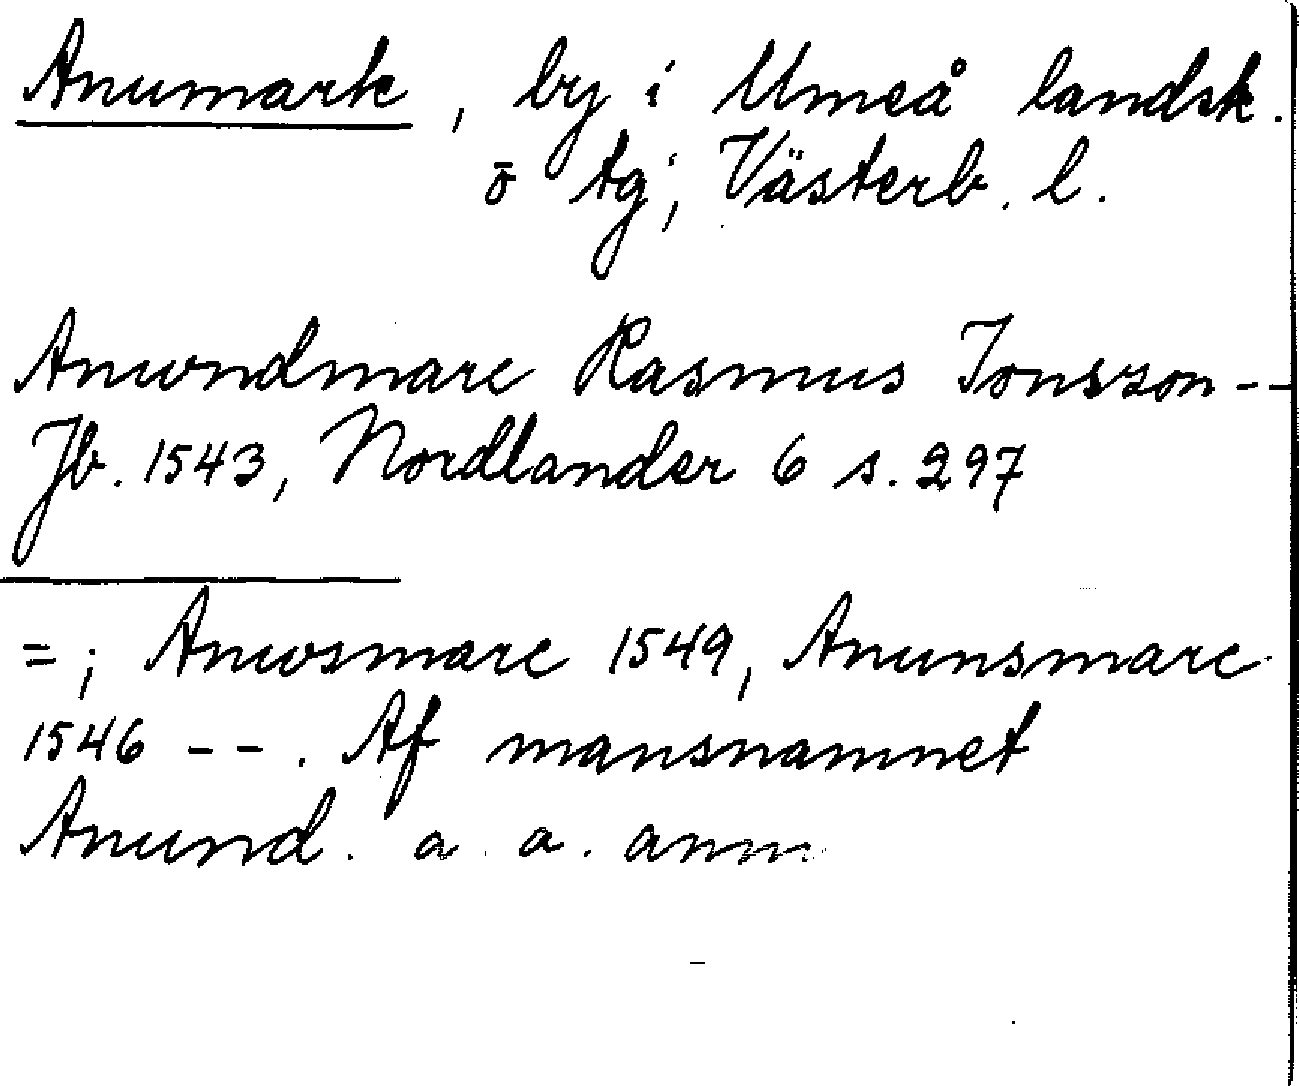 Anumark, by i Umeå landsk.
o tg; Västerb. l.
Anwndmarc Rasmus Jonszon --
Jb. 1543, Nordlander 6 s. 297
= ; Anwsmarc 1549, Anunsmarc
1546 -- . Af mansnamnet
Anund. a. a. anm.